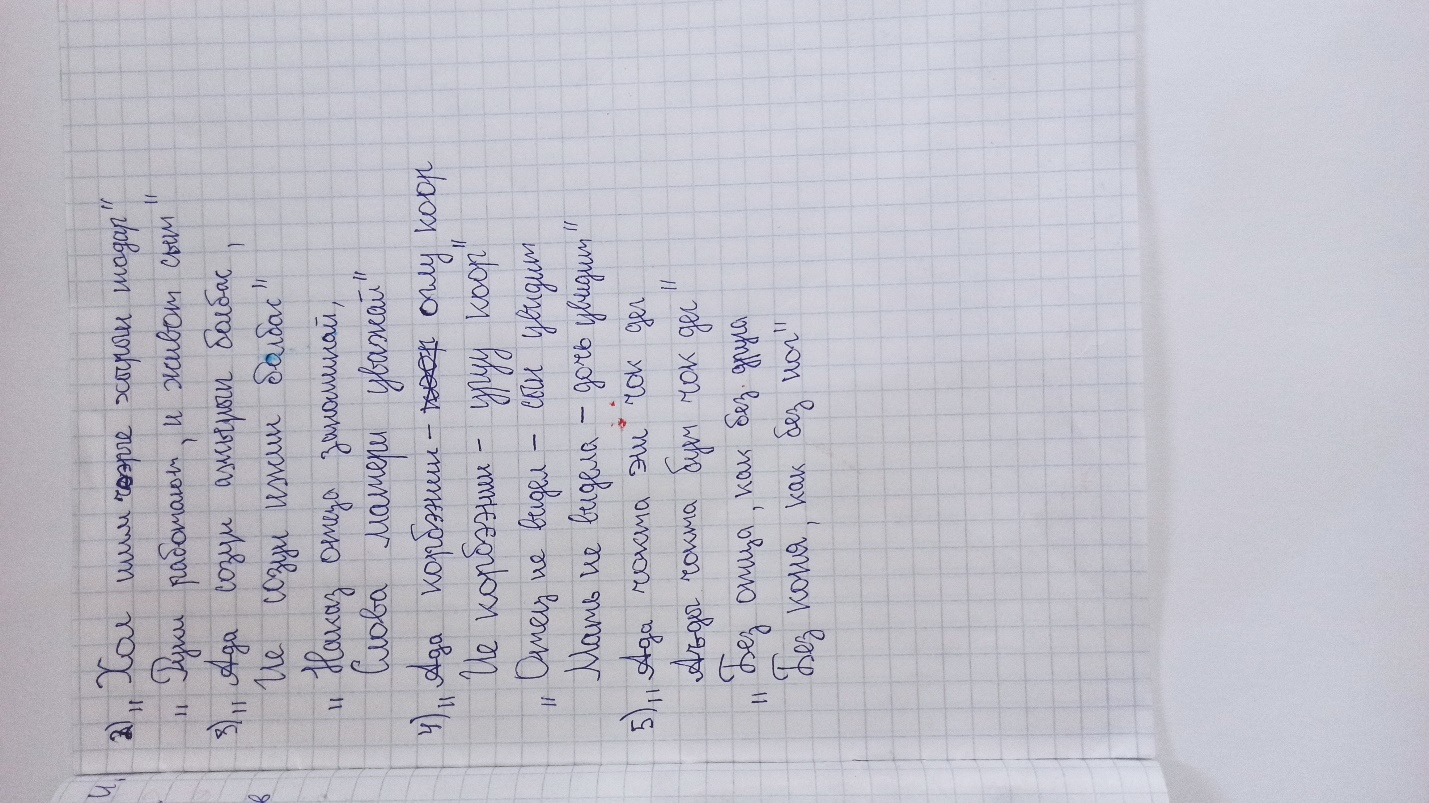 2) „Хол шимчээрге хырын тодар"
„Руки работают, и живот сыт"
3) „Ада созун ажырып болбас,
Ие созун ижип болбас"
„Наказ отца запоминай,
Слова матери уважай"
4) „Ада корбээнин - оглу коор
Ие корбээнин - уруу коор"
„Отец не видел - сын увидит
Мать не видела - дочь увидит"
5) „Ада чокта эш чок дег
Аъды чокта бут чок дег"
„Без отца, как без друга
Без коня, как без ног"